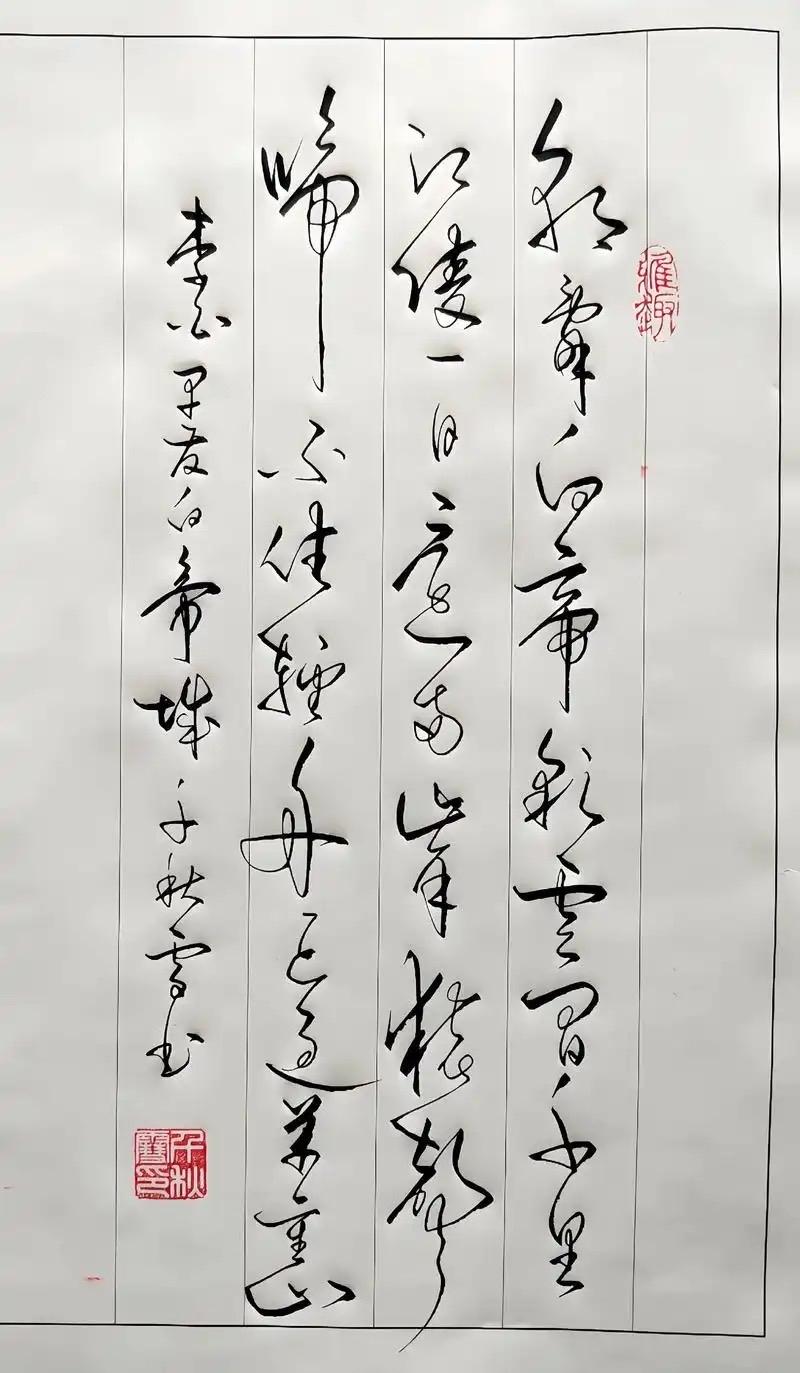 雅趣
朝辭白帝彩雲間千里
江陵一日還兩岸猿聲
啼不住輕舟已過萬重山
李白早發白帝城千秋雪书
千秋雪印